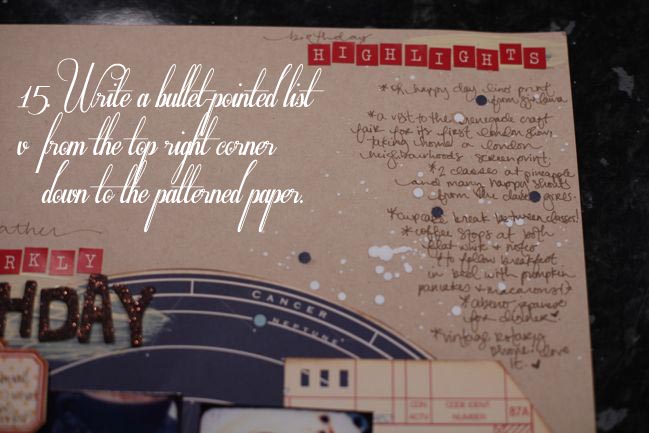 birthday
HIGHLIGHTS
15. Write a bullet-pointed list
from the top right corner
down to the patterned paper.
*oh happy day lino print
from
*a visit to the renegade craft
fair for its first london show,
taking home a london
neighbourhoods screenprint.
*2 classes at pineapple
and many happy shouts
from the girls.
*cupcake break between classes!
*coffee stops at both
flat white &
(to follow breakfast
in bed with pumpkin
pancakes & macarons!)
for dinner
*vintage rotary
phone. love
it.
RKLY
HDAY
CANCER
NEPTUNE
CON
ACTV
CODE IDENT.
NUMBER
87A